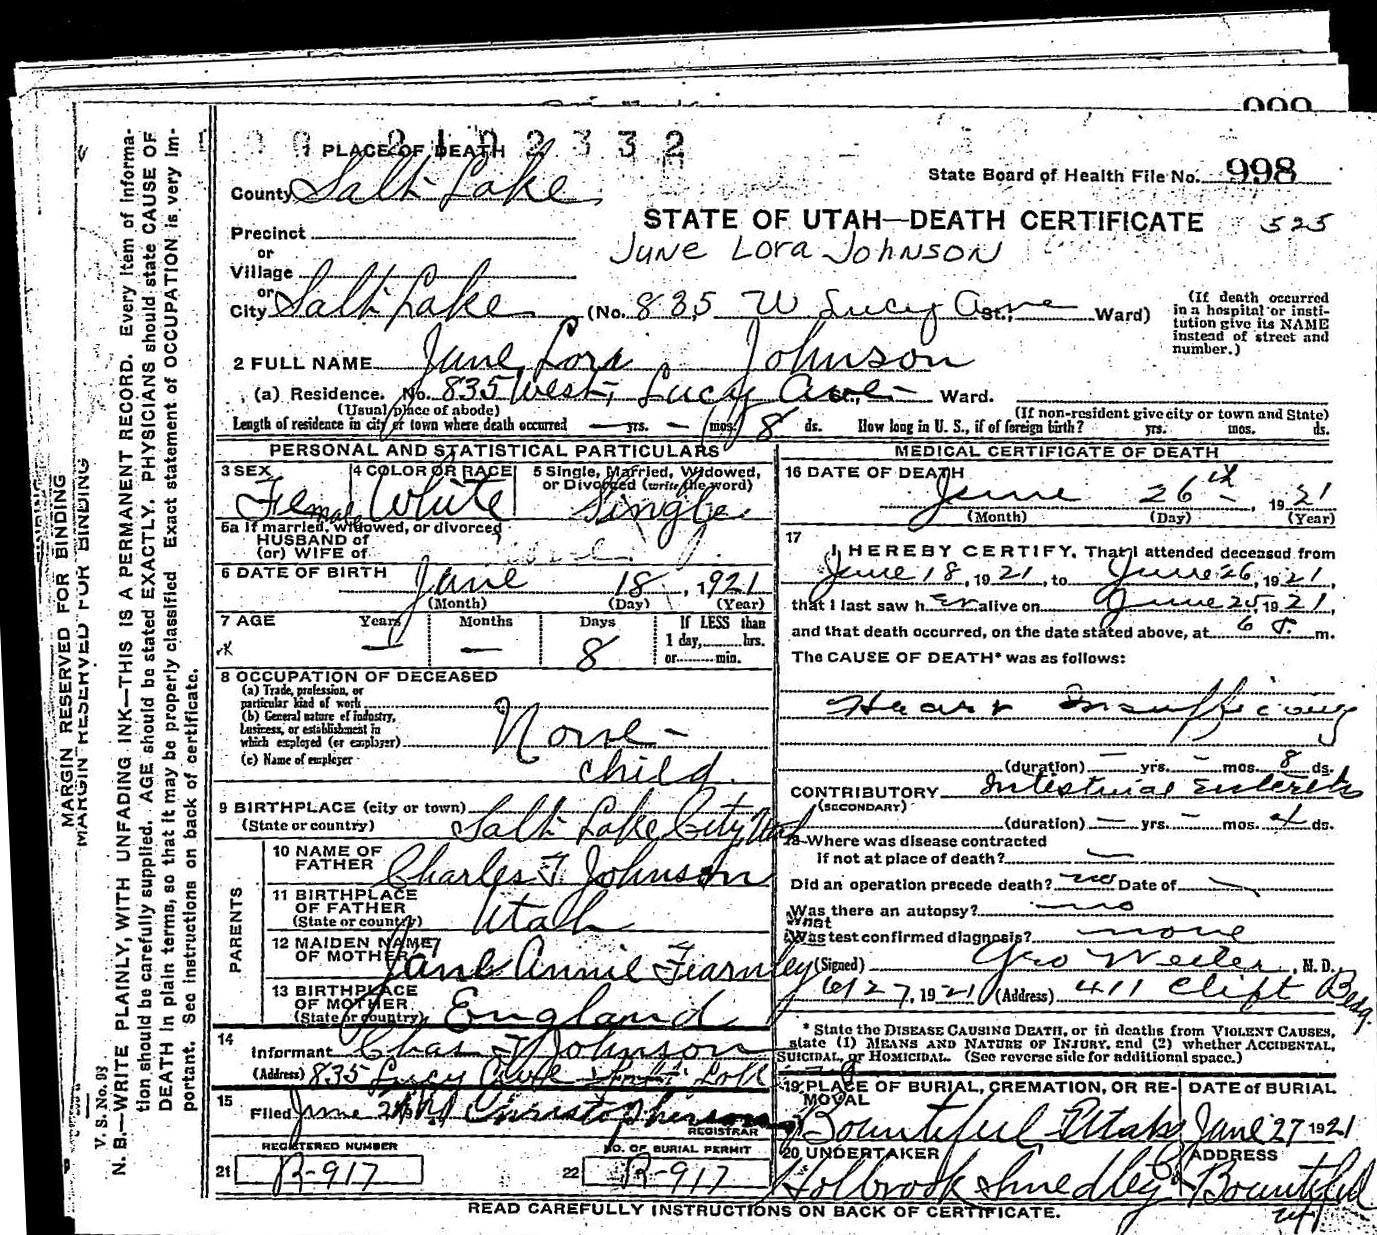 999
2102332
1 PLACE OF DEATH
State Board of Health File No. 998
County Salt Lake
STATE OF UTAH—DEATH CERTIFICATE 525
Precinct
June Lora Johnson
or
Village
or
City Salt Lake (No. 835 W Lucy Ave St.; Ward)
(If death occurred in a hospital or insti-
tution give its NAME
instead of street and
number.)
2 FULL NAME June Lora Johnson
(a) Residence. No. 835 West, Lucy Ave St., Ward.
(Usual place of abode) (If non-resident give city or town and State)
Length of residence in city or town where death occurred — yrs. — mos. 8 ds. How long in U. S., if of foreign birth? yrs. mos. ds.
PERSONAL AND STATISTICAL PARTICULARS
3 SEX 4 COLOR OR RACE 5 Single, Married, Widowed,
or Divorced (write the word)
Female White Single
5a If married, widowed, or divorced
HUSBAND of
(or) WIFE of
6 DATE OF BIRTH June 18, 1921
(Month) (Day) (Year)
7 AGE Years Months Days If LESS than
1 day, hrs.
or min.
— — 8
8 OCCUPATION OF DECEASED
(a) Trade, profession, or
particular kind of work
(b) General nature of industry,
business, or establishment in
which employed (or employer)
(c) Name of employer
None -
child.
9 BIRTHPLACE (city or town)
(State or country) Salt Lake City, Utah
PARENTS
10 NAME OF
FATHER Charles F. Johnson
11 BIRTHPLACE
OF FATHER
(State or country) Utah
12 MAIDEN NAME
OF MOTHER Jane Annie Fearnley
13 BIRTHPLACE
OF MOTHER
(State or country) England
14
Informant Chas F Johnson
(Address) 835 Lucy Ave Salt Lake
15
Filed June Christopherson
REGISTRAR
REGISTERED NUMBER NO. OF BURIAL PERMIT
21 R-917 22 R-917
MEDICAL CERTIFICATE OF DEATH
16 DATE OF DEATH
June 26th, 1921
(Month) (Day) (Year)
17
I HEREBY CERTIFY, That I attended deceased from
June 18, 1921, to June 26, 1921,
that I last saw her alive on June 25, 1921,
and that death occurred, on the date stated above, at 6 m.
The CAUSE OF DEATH* was as follows:
Heart Insufficiency
(duration) — yrs. — mos. 8 ds.
CONTRIBUTORY Intestinal
(SECONDARY)
(duration) — yrs. — mos. 4 ds.
18 Where was disease contracted
if not at place of death? —
Did an operation precede death? no Date of
Was there an autopsy? no
What
Was test confirmed diagnosis? none
(Signed) Geo , M. D.
6/27, 1921 (Address) 411 Clift Bldg.
* State the DISEASE CAUSING DEATH, or in deaths from VIOLENT CAUSES,
state (1) MEANS AND NATURE OF INJURY, and (2) whether ACCIDENTAL,
SUICIDAL, or HOMICIDAL. (See reverse side for additional space.)
19 PLACE OF BURIAL, CREMATION, OR RE-
MOVAL DATE of BURIAL
Bountiful Utah June 27 1921
20 UNDERTAKER ADDRESS
Holbrook Smedley Co Bountiful
READ CAREFULLY INSTRUCTIONS ON BACK OF CERTIFICATE.
MARGIN RESERVED FOR BINDING
MARGIN RESERVED FOR BINDING
V. S. No. 93
N. B.—WRITE PLAINLY, WITH UNFADING INK—THIS IS A PERMANENT RECORD. Every item of informa-
tion should be carefully supplied. AGE should be stated EXACTLY. PHYSICIANS should state CAUSE OF
DEATH in plain terms, so that it may be properly classified Exact statement of OCCUPATION is very im-
portant. See instructions on back of certificate.